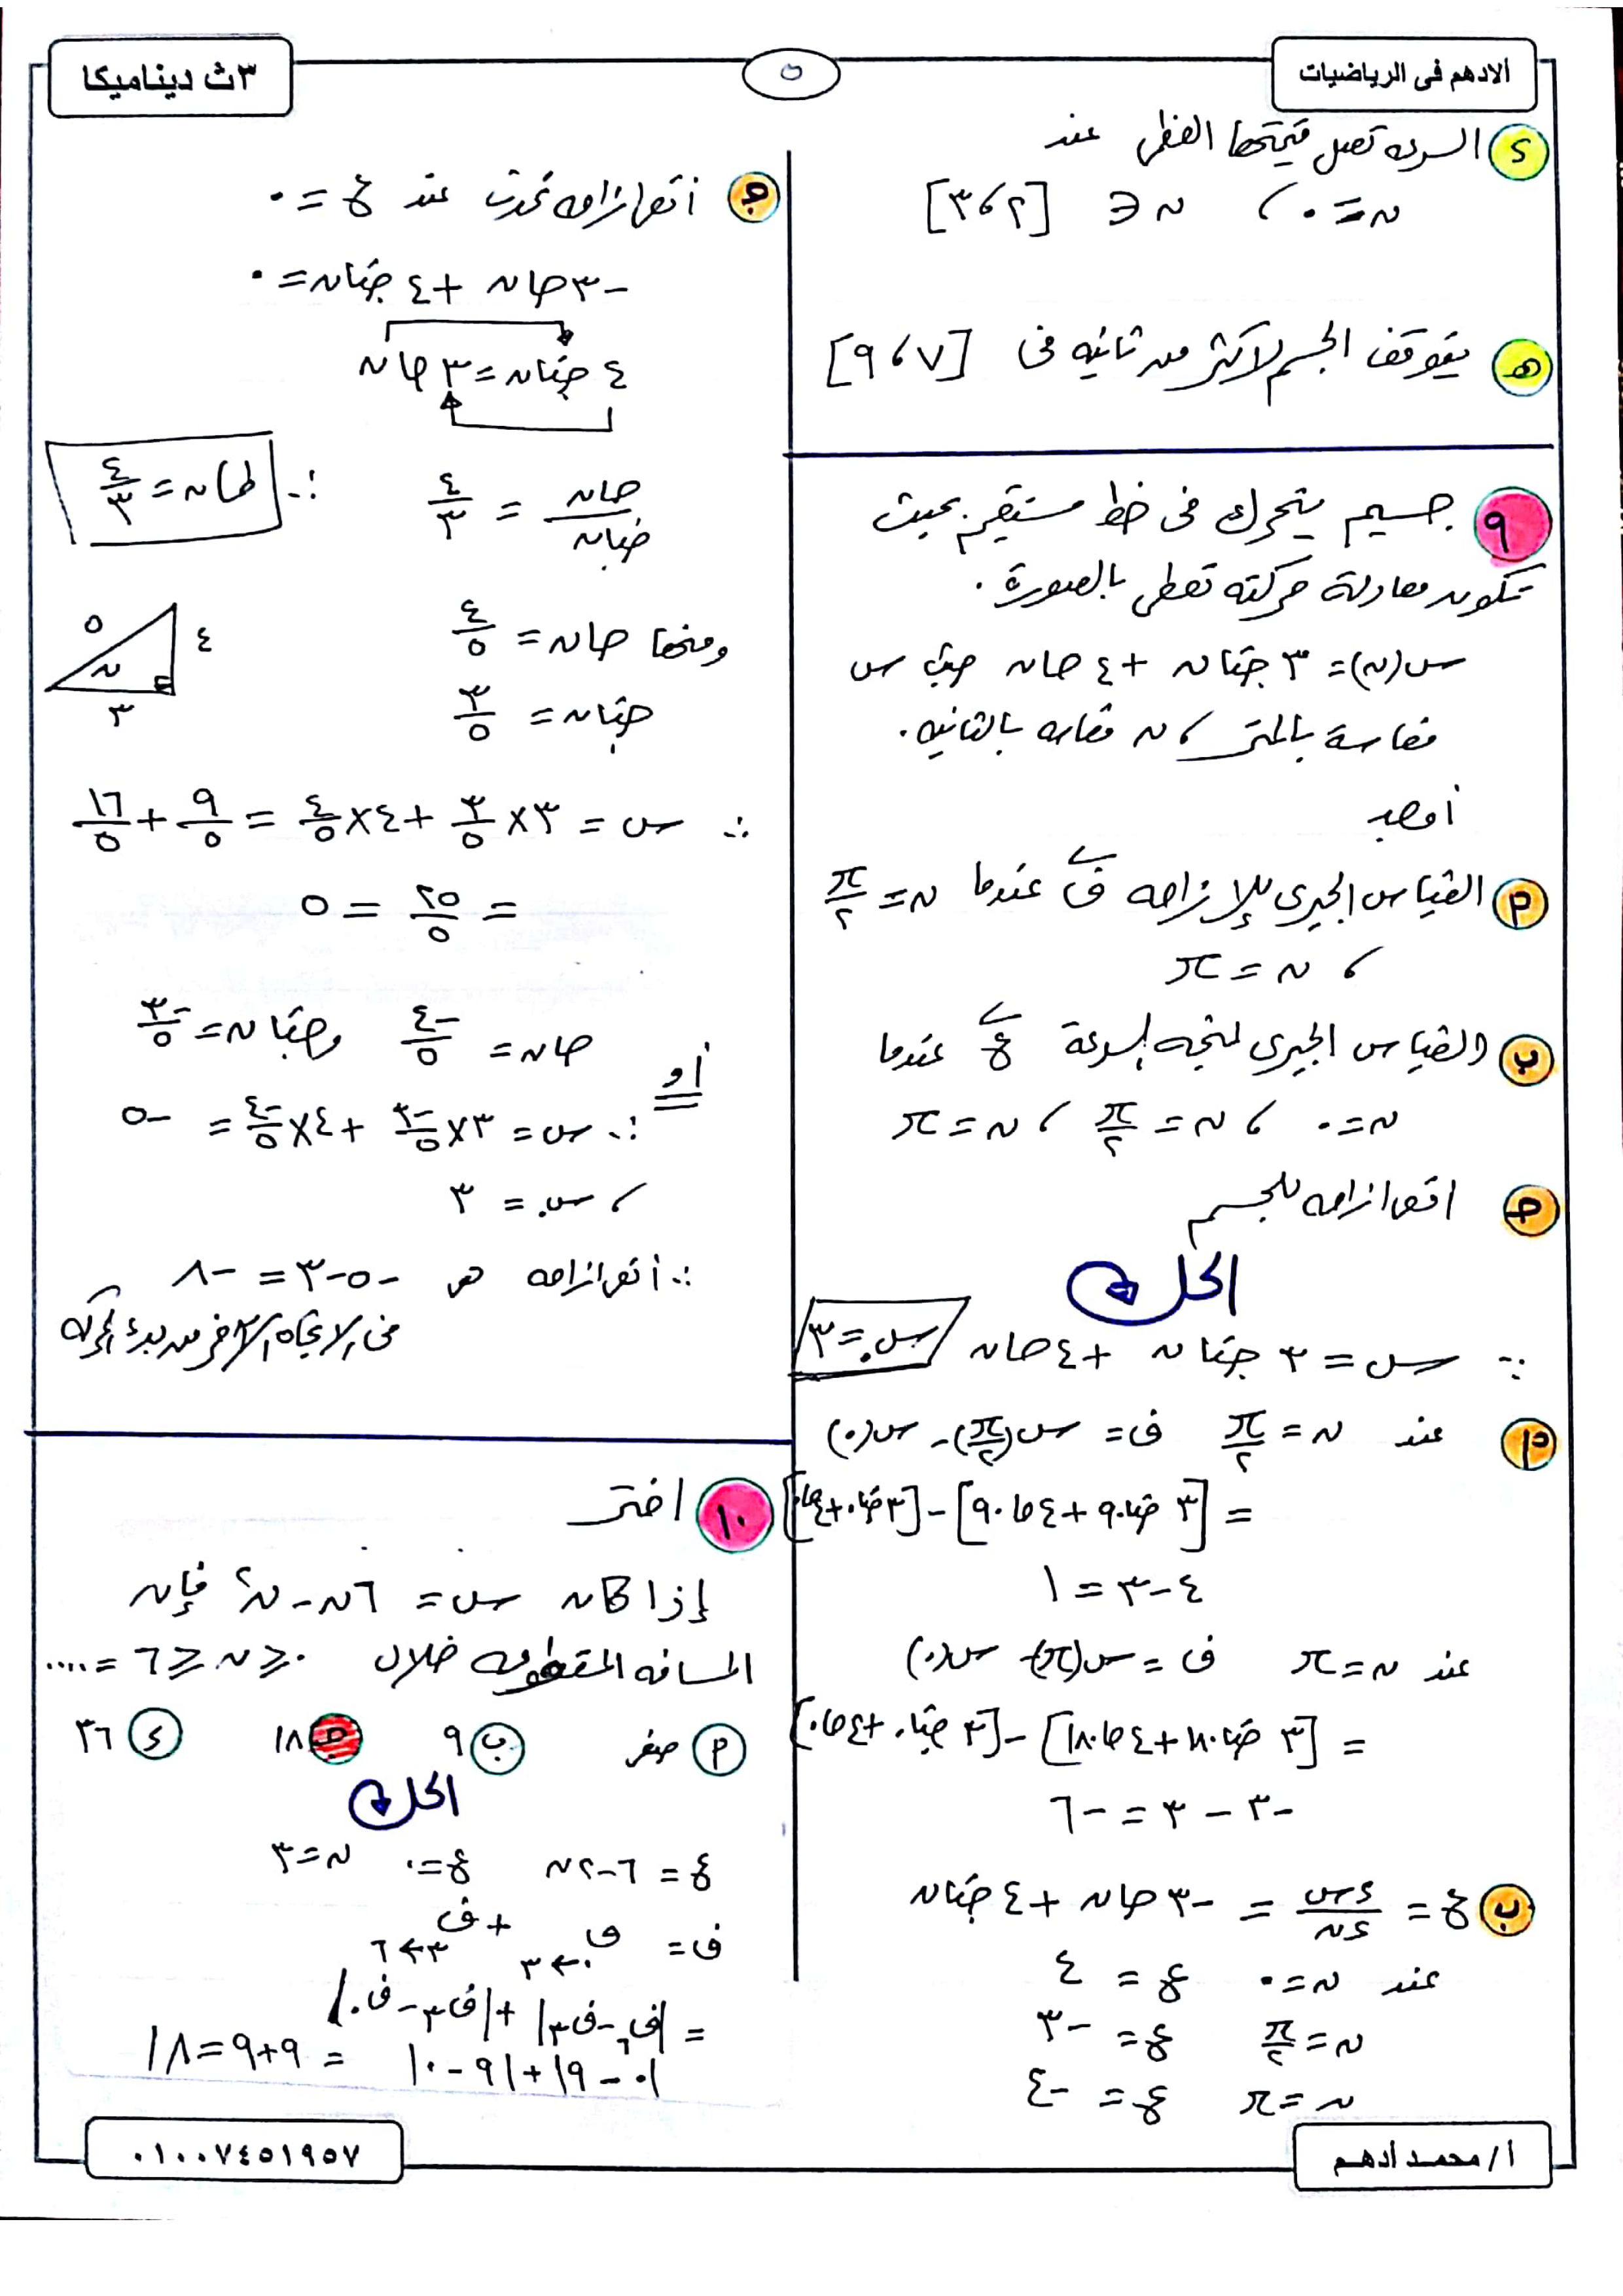 الادهم فى الرياضيات
٥
٣ث ديناميكا
د السرعه تصل قيمتها العظمى عند
ن = ٠ ، ن ∈ [٢ ، ٣]
هـ يتوقف الجسم لأكثر من ثانيه فى [٧ ، ٩]
٩ جسيم يتحرك فى خط مستقيم بحيث
تكون معادلة حركته تعطى بالصورة .
س(ن) = ٣ جتا ن + ٤ حا ن حيث س
مقاسة بالمتر ، ن مقاسه بالثانيه .
أوجد
م القياس الجبرى للإزاحه ف عندما ن = π/٢
، ن = π
ب القياس الجبرى لمتجه السرعة ع عندما
ن = ٠ ، ن = π/٢ ، ن = π
حـ اقصى ازاحه للجسم
الحل
∵ س = ٣ جتا ن + ٤ حا ن س٠ = ٣
م عند ن = π/٢ ف = س(π/٢) - س(٠)
= [٣ جتا ٩٠ + ٤ حا ٩٠] - [٣ جتا ٠ + ٤ حا ٠]
٤ - ٣ = ١
عند ن = π ف = س(π) - س(٠)
= [٣ جتا ١٨٠ + ٤ حا ١٨٠] - [٣ جتا ٠ + ٤ حا ٠]
-٣ - ٣ = -٦
ب ع = دس/دن = -٣ حا ن + ٤ جتا ن
عند ن = ٠ ع = ٤
ن = π/٢ ع = -٣
ن = π ع = -٤
جـ أقصى ازاحه تحدث عند ع = ٠
-٣ حا ن + ٤ جتا ن = ٠
٤ جتا ن = ٣ حا ن
حا ن/جتا ن = ٤/٣ ∴ طا ن = ٤/٣
ومنها حا ن = ٤/٥
جتا ن = ٣/٥
٥ ٤ ن ٣
∴ س = ٣ × ٣/٥ + ٤ × ٤/٥ = ٩/٥ + ١٦/٥
= ٢٥/٥ = ٥
أو حا ن = -٤/٥ وجتا ن = -٣/٥
∴ س = ٣ × -٣/٥ + ٤ × -٤/٥ = -٥
، س٠ = ٣
∴ أقصى ازاحه هى -٥ - ٣ = -٨
فى الاتجاه الآخر من بدء الحركه
١٠ اختر
إذا كان س = ٦ن - ن٢ فإن
المسافه المقطوعه خلال ٠ ≤ ن ≤ ٦ = ....
م صفر ب ٩ جـ ١٨ د ٣٦
الحل
ع = ٦ - ٢ن ع = ٠ ن = ٣
ف = ف ٠←٣ + ف ٣←٦
= |ف٦ - ف٣| + |ف٣ - ف٠|
|٠ - ٩| + |٩ - ٠| = ٩ + ٩ = ١٨
أ / محمد أدهم
٠١٠٠٧٤٥١٩٥٧